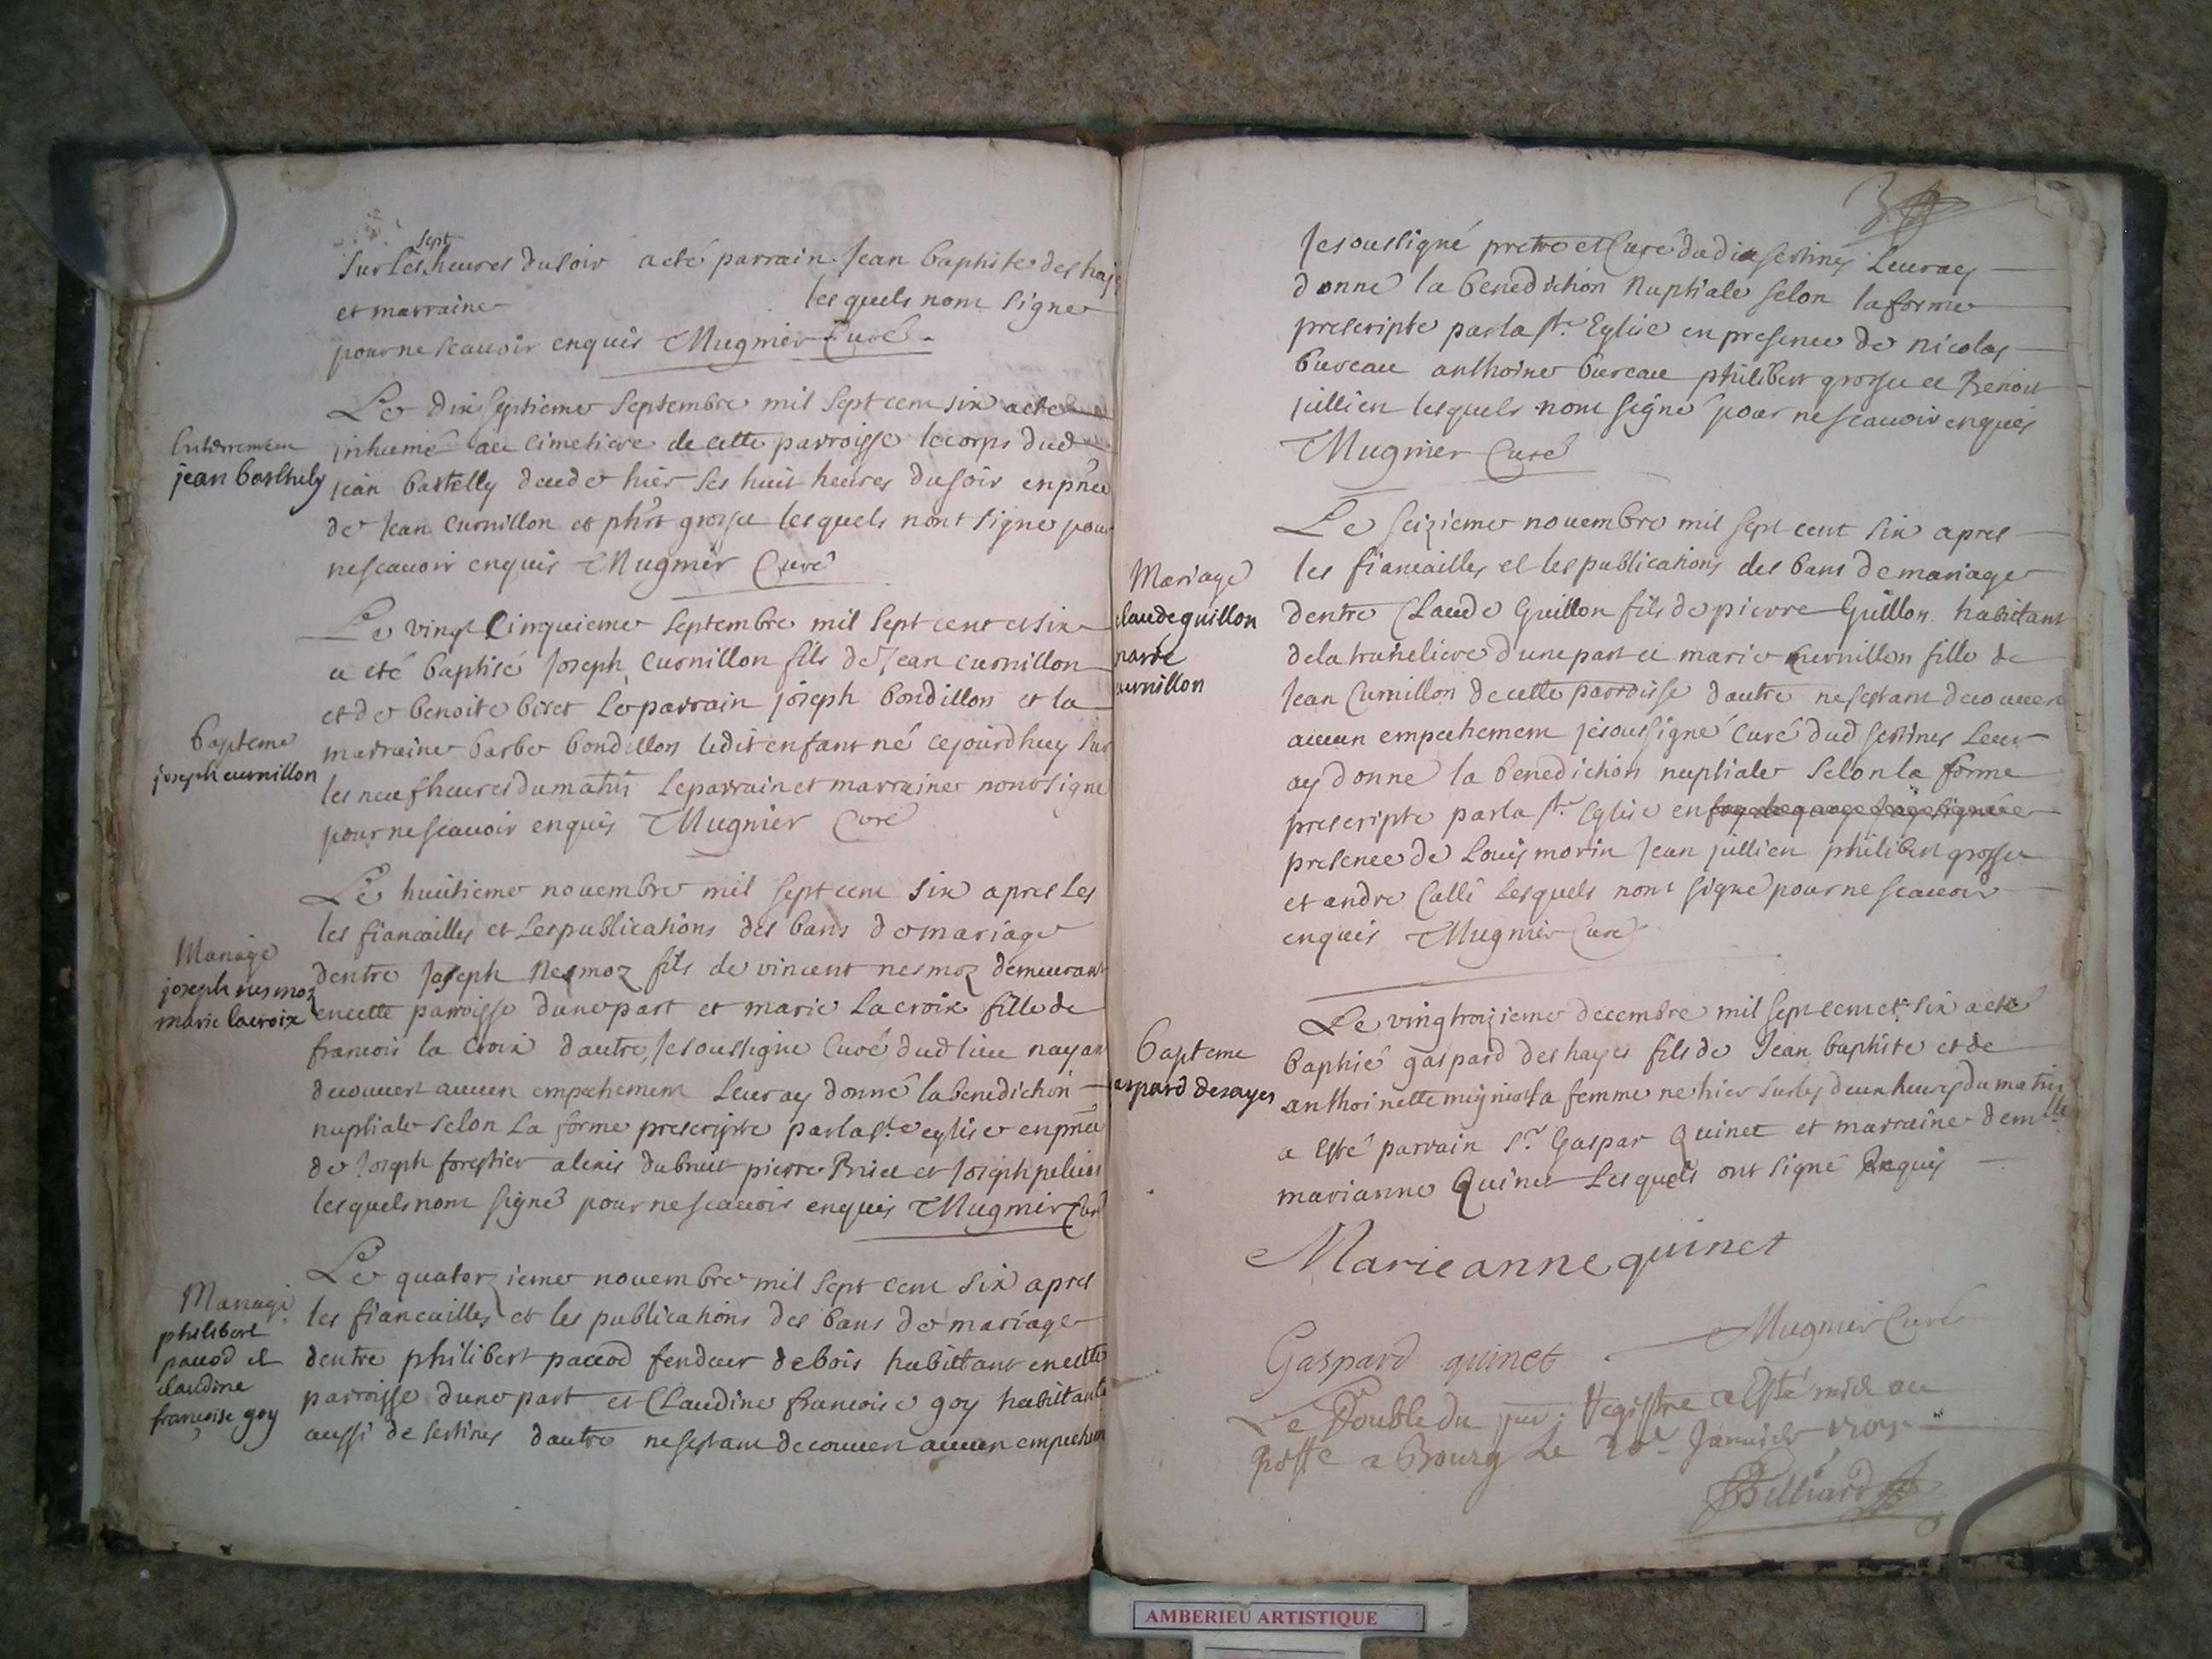 sept
sur les heures du soir a eté parrain Jean baptiste des hay
et marraine lesquels nont signe
pour ne scavoir enquis Mugnier Curé
Le dix septieme septembre mil sept cent six a eté
inhumé au cimetiere de cette parroisse le corps dud
jean bartelly hier huit heures du soir en pnce
de Jean Curnillon et phbt grossu lesquels nont signe pour
ne scavoir enquis Mugnier Curé
Enterrement
jean barthely
Le vingt cinquieme septembre mil sept cent et six
a eté baptisé Joseph Curnillon fils de Jean curnillon
et de benoite Le parrain joseph bondillon et la
marraine barbe bondillon ledit enfant né cejourdhuy sur
les neuf heures du matin Le parrain et marraine nont signe
pour ne scavoir enquis Mugnier Curé
bapteme
joseph curnillon
Le huitieme novembre mil sept cent six apres les
les fiancailles et les publications des bans de mariage
dentre Joseph Nesmoz fils de vincent nesmoz demeurant
en cette parroisse dune part et marie Lacroix fille de
francois la Croix dautre, Je soussigne Curé dud lieu nayant
decouvert aucun empechement Leur ay donné la benediction
nuptiale selon La forme prescripte par la ste eglise en pnce
de Joseph forestier alexis dubruit pierre et Joseph
lesquels nont signé pour ne scavoir enquis Mugnier Curé
Mariage
joseph nesmoz
marie lacroix
Le quatorzieme novembre mil sept cent six apres
les fiancailles et les publications des bans de mariage
dentre philibert pacod fendeur de bois habittant en cette
parroisse dune part et Claudine francoise goy habittante
aussi de sertines dautre ne sestant decouvert aucun empechem
Mariage
philibert
pacod et
claudine
françoise goy
Je soussigné pretre et Curé dudit sertines Leur ay
donné la benediction Nuptiale selon la forme
prescripte par la ste Eglise en presence de nicolas
bureau anthoine bureau philibert grossu et Benoit
jullien lesquels nont signé pour ne scavoir enquis
Mugnier Curé
Le seizieme novembre mil sept cent six apres
les fiancailles et les publications des bans de mariage
dentre Claude Guillon fils de pierre Guillon habitant
de la dune part et marie curnillon fille de
Jean Curnillon de cette parroisse dautre ne sestant decouvert
aucun empechement je soussigné Curé dud sertines Leur
ay donne la benediction nuptiale selon la forme
prescripte par la ste Eglise en
presence de Louis morin Jean jullien philibert grossu
et andre Calli Lesquels nont signe pour ne scavoir
enquis Mugnier Curé
Mariage
claude guillon
marie
curnillon
Le vingtroizieme decembre mil sept cent et six a eté
baptisé gaspard deshayes fils de Jean baptiste et de
anthoinette sa femme ne hier sur les deux heures du matin
a Esté parrain Sr Gaspar Quinet et marraine demlle
marianne Quinet Lesquels ont signé Enquis
bapteme
gaspard desayes
Marie anne quinet
Mugnier Curé
Gaspard quinet
Le Double du pnt Registre a Esté mis au
greffe a Bourg Le 20e Janvier
Billiard
AMBERIEU ARTISTIQUE